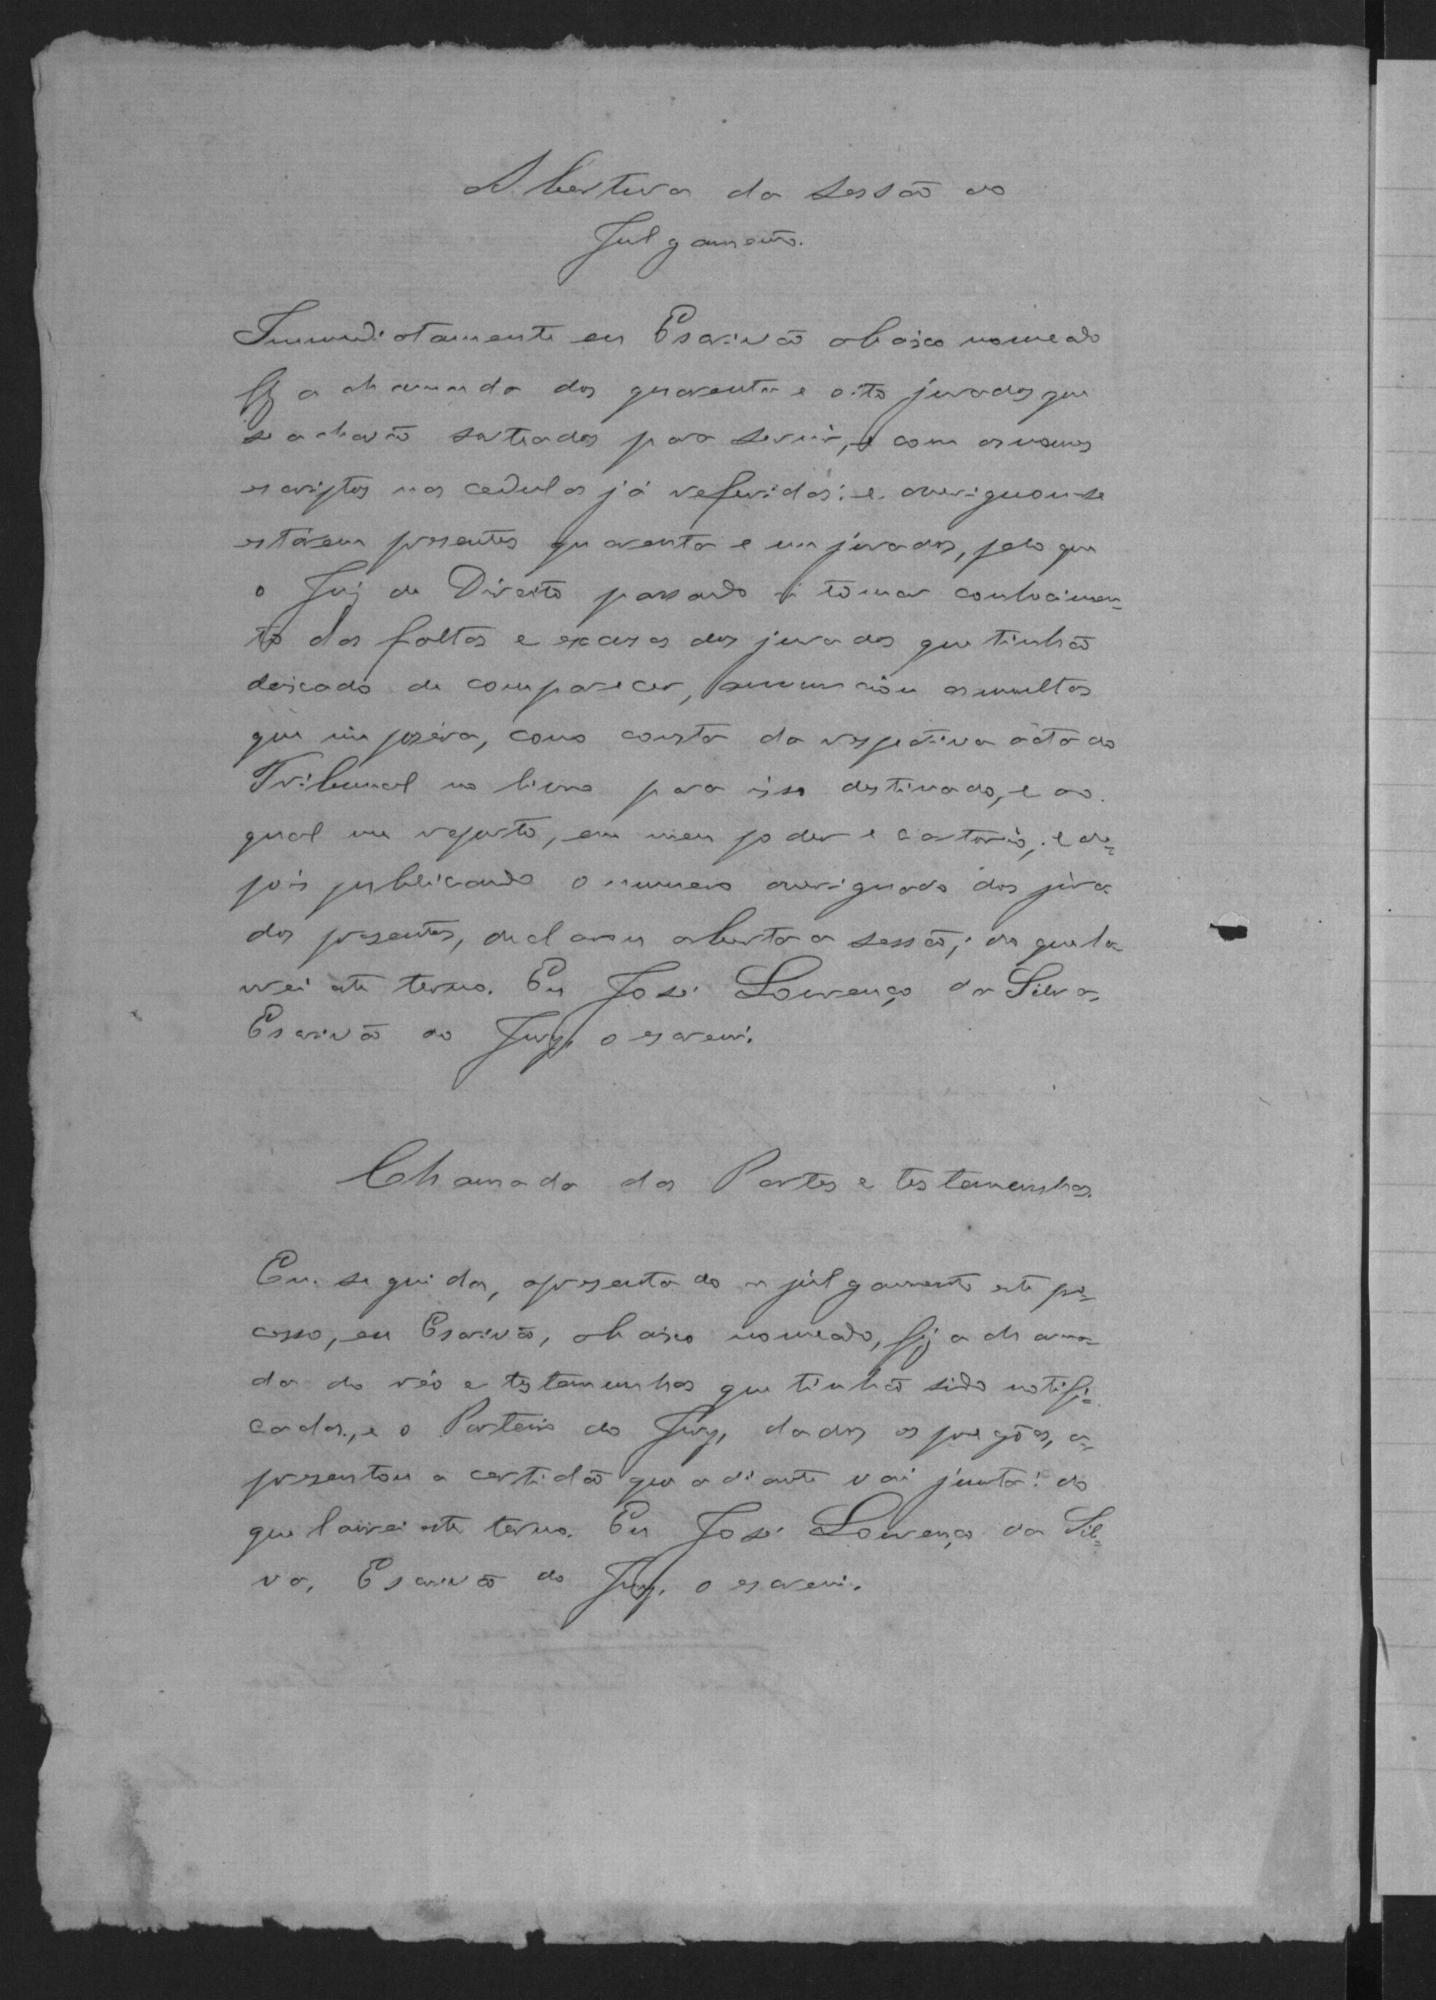 Abertura da sessão do
Julgamento.
Immediatamente eu Escrivão abaixo nomeado
fiz a chamada dos quarenta e oito jurados que
se achavão sorteados para servir, e com os nomes
escriptos nas cedulas já referidas; e averiguou-se
estárem presentes quarenta e um jurados, pelo que
o Juiz de Direito passando a tomar conhecimen-
to das faltas e excusas dos jurados que tinhão
deixado de comparecer, annunciou as multas
que impozéra, como consta da respectiva acta do
Tribunal no livro para isso destinado, e ao
qual me reporto, em meu poder e cartorio; e de-
pois publicando o numero averiguado dos jura
dos presentes, declarou aberta a sessão; do que la-
vrei este termo. Eu José Lourenço da Silva,
Escrivão do Jury, o escrevi.
Chamada das Partes e testemunhas.
Em seguida, apresentado a julgamento este pro-
cesso, eu Escrivão, abaixo nomeado, fiz a chama-
da do réo e testemunhas que tinhão sido notifi-
cadas, e o Porteiro do Jury, dados os pregões, a-
presentou a certidão que adiante vai junta: do
que lavrei este termo. Eu José Lourenço da Sil-
va, Escrivão do Jury, o escrevi.